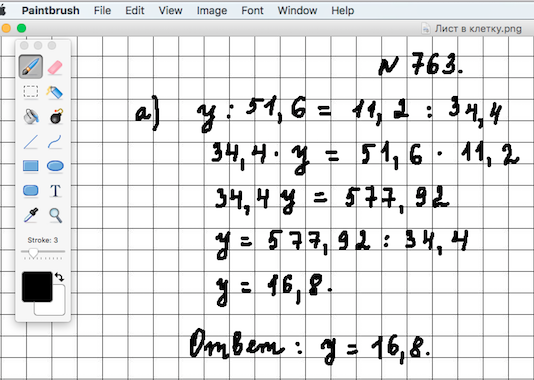 Paintbrush File Edit View Image Font Window Help
Лист в клетку.png
N 763.
а) y : 51,6 = 11,2 : 34,4
34,4 · y = 51,6 · 11,2
34,4 y = 577,92
y = 577,92 : 34,4
y = 16,8.
Ответ : y = 16,8.
T
Stroke: 3